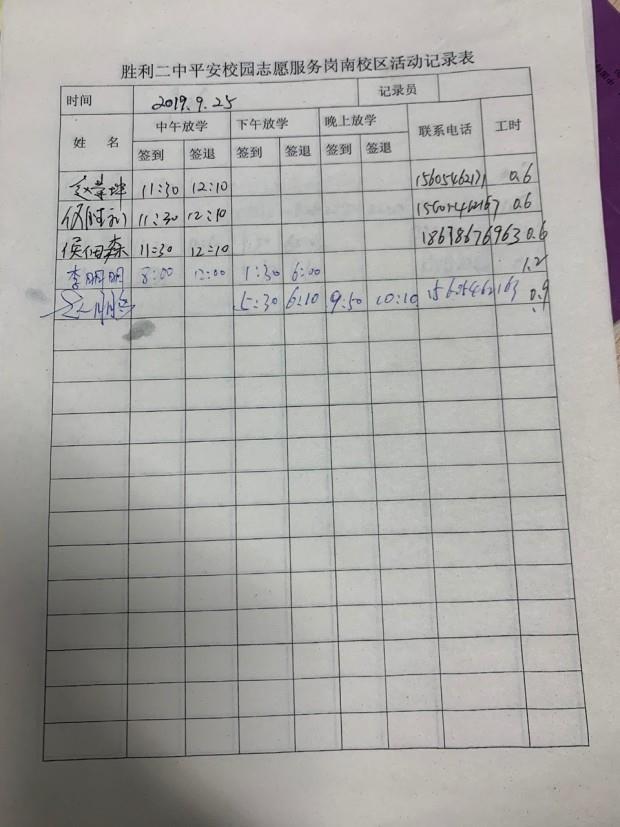 胜利二中平安校园志愿服务岗南校区活动记录表
时间 2019.9.25 记录员
姓 名 中午放学 下午放学 晚上放学 联系电话 工时
签到 签退 签到 签退 签到 签退
11:30 12:10 15605462171 0.6
11:30 12:10 0.6
侯佃森 11:30 12:10 18678676963 0.6
李明明 8:00 12:00 1:30 6:00 1.2
5:30 6:10 9:50 10:10 15605462163 0.9